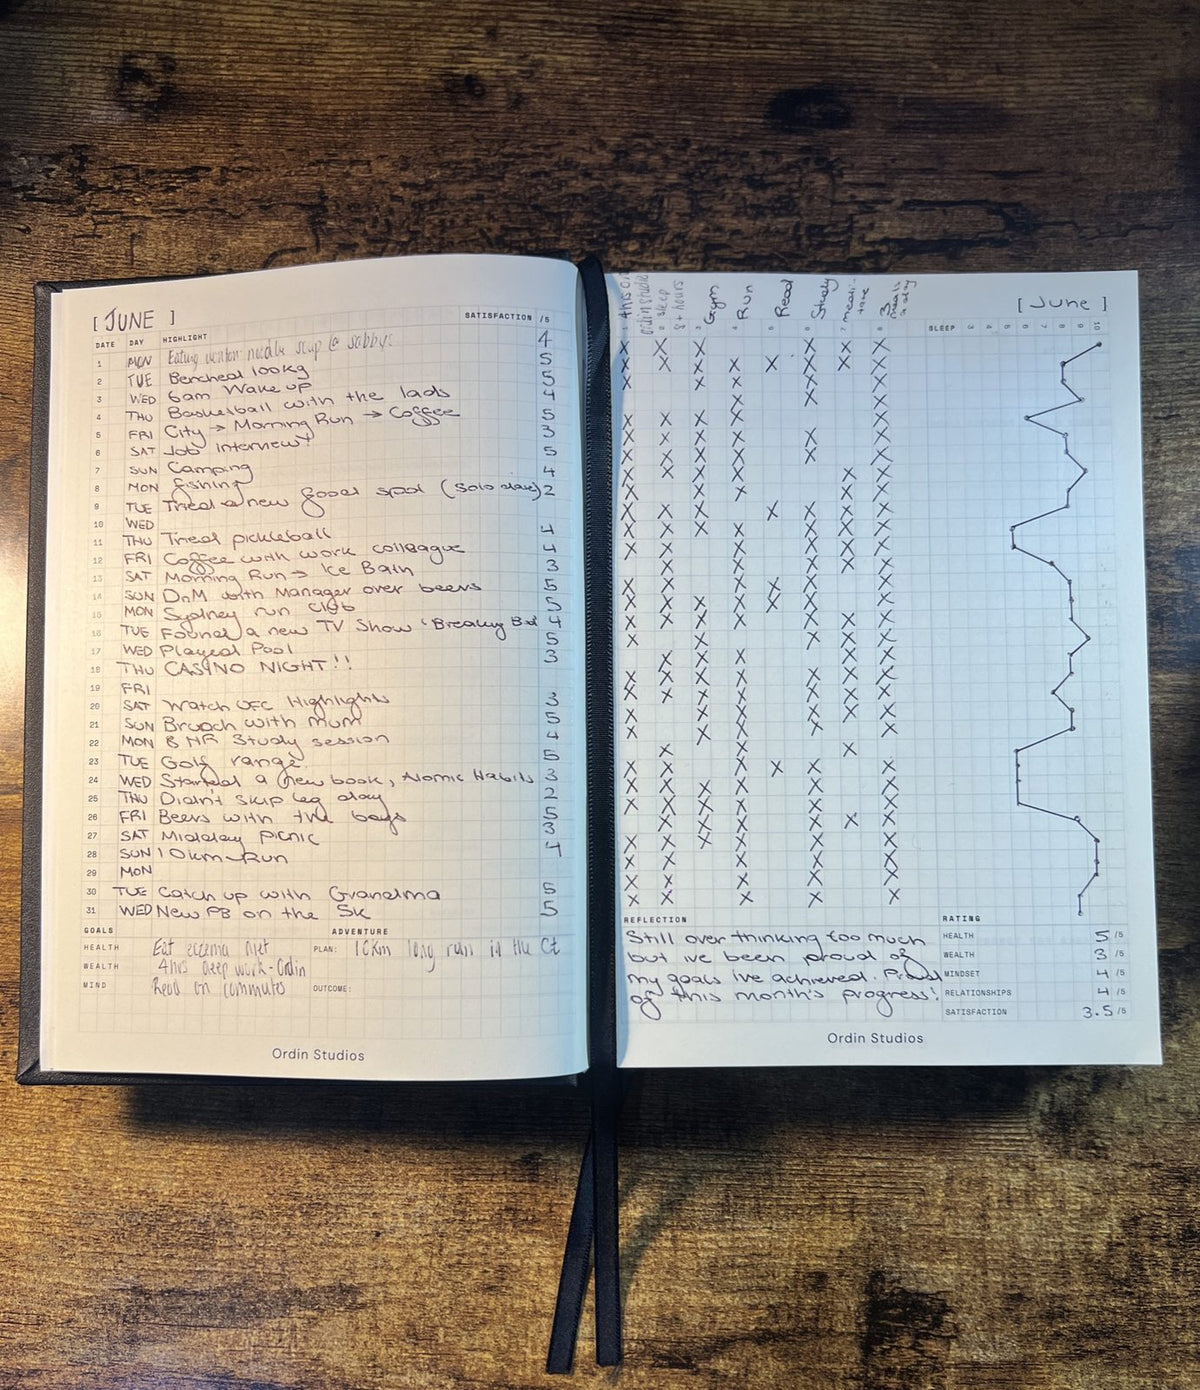 [ JUNE ]
SATISFACTION /5
DATE DAY HIGHLIGHT 4
1 MON Eating wonton noodle soup @ sabbys 5
2 TUE Benched 100kg 5
3 WED 6am Wake up 4
4 THU Basketball with the lads
5 FRI City → Morning Run → Coffee 5
6 SAT Job interview! 3
7 SUN Camping 5
8 MON fishing 4
9 TUE Tried a new food spot (solo date) 2
10 WED
11 THU Tried pickleball 4
12 FRI Coffee with work colleague 4
13 SAT Morning Run → Ice Bath 3
14 SUN DnM with Manager over beers 5
15 MON Sydney run club 5
16 TUE Found a new TV Show 'Breaking Bad 4
17 WED Played Pool 5
18 THU CASINO NIGHT!! 3
19 FRI
20 SAT Watch UFC Highlights 3
21 SUN Brunch with mum 5
22 MON 8 HR Study session 4
23 TUE Golf range 5
24 WED Started a new book, Atomic Habits 3
25 THU Didn't skip leg day 2
26 FRI Beers with the boys 5
27 SAT Midday picnic 3
28 SUN 10km Run 4
29 MON
30 TUE Catch up with Grandma 5
31 WED New PB on the 5k 5
GOALS ADVENTURE
HEALTH Eat eczema diet PLAN: 10km long run in the Ct
WEALTH 4hrs deep work - Ordin
MIND Read on commutes OUTCOME:
Ordin Studios
ordin studio
sleep 8+ hours
Gym
Run
Read
Study
3 meals a day
[ June ]
SLEEP 3 4 5 6 7 8 9 10
X X X X X X
X X X X X X X
X X X X
X X X
X X X X X
X X X X X X
X X X X X X
X X X X X
X X X X
X X X X X X X
X X X X X X
X X X X X
X X X X
X X X X X
X X X X X X
X X X X X X
X X X X X
X X X X X
X X X X X
X X X X X X
X X X X X X
X X X X X
X X X
X X X X X X
X X X X X X
X X X X X X
X X X X X
X X X X X X
X X X X X
X X X X X
X X X X X
REFLECTION RATING
Still over thinking too much
but ive been proud of
my goals ive achieved. Proud
of this month's progress!
HEALTH 5 /5
WEALTH 3 /5
MINDSET 4 /5
RELATIONSHIPS 4 /5
SATISFACTION 3.5 /5
Ordin Studios